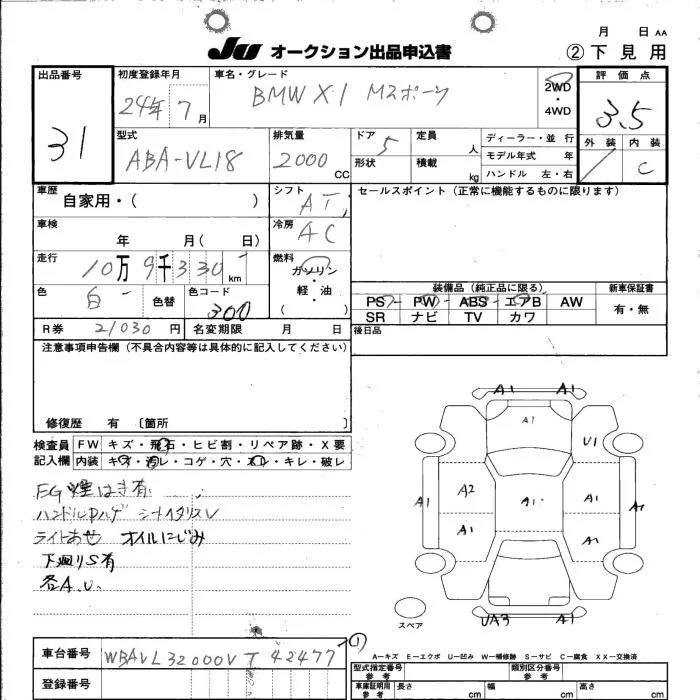 月 日 AA
JU オークション出品申込書
②下見用
出品番号
31
初度登録年月
24年 7月
車名・グレード
BMW X1 Mスポーツ
2WD
・
4WD
評価点
3.5
外装 内装
C
型式
ABA-VL18
排気量
2000 CC
ドア
5
定員
人
形状
積載
kg
ディーラー・並行
モデル年式 年
ハンドル 左・右
車歴
自家用・( )
シフト
AT
セールスポイント(正常に機能するものに限ります)
車検
年 月( 日)
冷房
AC
走行
10万9千330km
燃料
ガソリン
・
軽・油
( )
色
白
色替
色コード
300
装備品(純正品に限る)
PS PW ABS エアB AW
SR ナビ TV カワ
新車保証書
有・無
R券 21030円
名変期限 月 日
後日品
注意事項申告欄(不具合内容等は具体的に記入してください)
修復歴 有 〔箇所 〕
検査員
記入欄
FW キズ・飛石・ヒビ割・リペア跡・X要
内装 キズ・汚レ・コゲ・穴・スレ・キレ・破レ
ハンドル
ライトあせ オイルにじみ
下廻りS有
各A.U.
A1 A1
A1
U1
A1 A2 A1 A1 A1
A1 A1
UA3 A1
スペア
車台番号
WBAVL32000VT42477
①
登録番号
A－キズ E－エクボ U－凹み W－補修跡 S－サビ C－腐食 XX－交換済
型式指定番号
参考
類別区分番号
参考
車庫証明用
参考
長さ cm
幅 cm
高さ cm